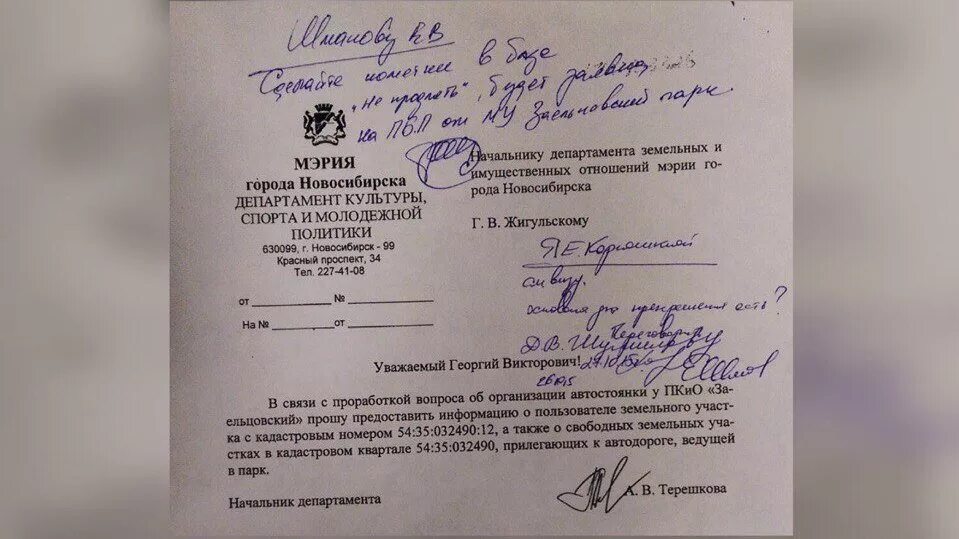 Сделайте пометки в базе
"Не продлять", будет заявка
на ПБП от МУ Заельцовский парк.
МЭРИЯ
города Новосибирска
ДЕПАРТАМЕНТ КУЛЬТУРЫ,
СПОРТА И МОЛОДЕЖНОЙ
ПОЛИТИКИ
630099, г. Новосибирск - 99
Красный проспект, 34
Тел. 227-41-08
от _____ № _____
На № _____ от _____
Начальнику департамента земельных и
имущественных отношений мэрии го-
рода Новосибирска
Г. В. Жигульскому
Я.Е.
см визу.
основания для прекращения есть?
Переговорить
Д.В.
Уважаемый Георгий Викторович!
В связи с проработкой вопроса об организации автостоянки у ПКиО «За-
ельцовский» прошу предоставить информацию о пользователе земельного участ-
ка с кадастровым номером 54:35:032490:12, а также о свободных земельных уча-
стках в кадастровом квартале 54:35:032490, прилегающих к автодороге, ведущей
в парк.
Начальник департамента
А. В. Терешкова